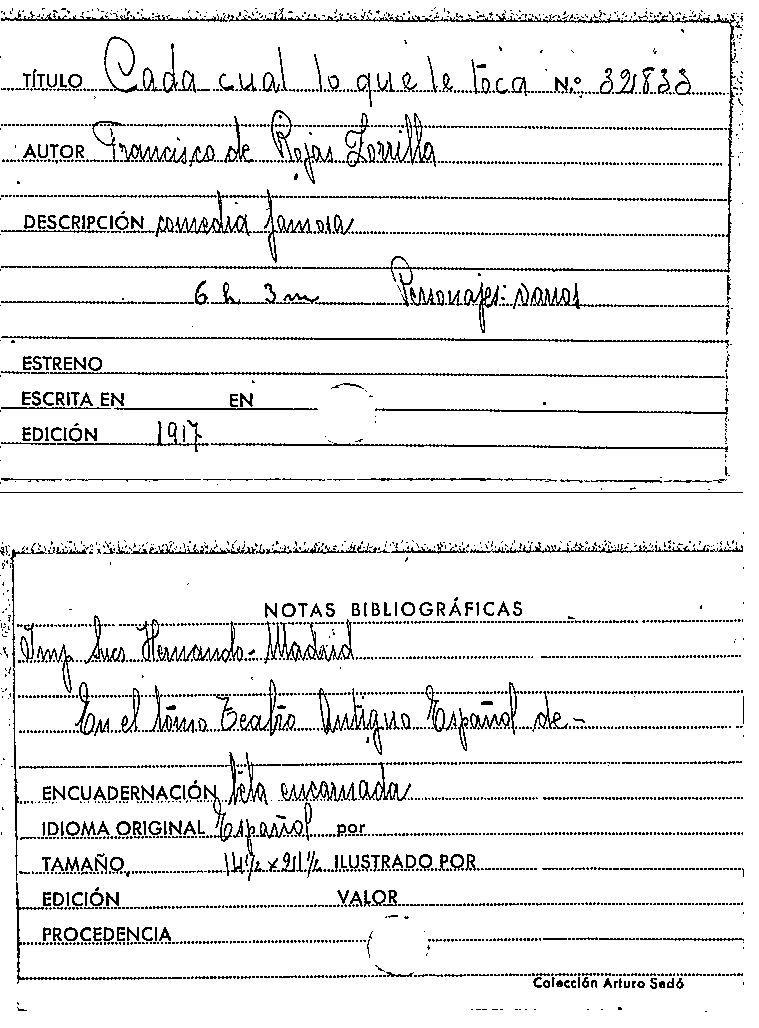 TÍTULO Cada cual lo que le toca N.º 321833
AUTOR Francisco de Rojas Zorrilla
DESCRIPCIÓN comedia famosa
6 h 3 m Personajes: varios
ESTRENO
ESCRITA EN EN
EDICIÓN 1917
NOTAS BIBLIOGRÁFICAS
Imp Sucs Hernando - Madrid
En el tomo Teatro Antiguo Español de -
ENCUADERNACIÓN tela encarnada
IDIOMA ORIGINAL Español por
TAMAÑO ILUSTRADO POR
EDICIÓN VALOR
PROCEDENCIA
Colección Arturo Sedó